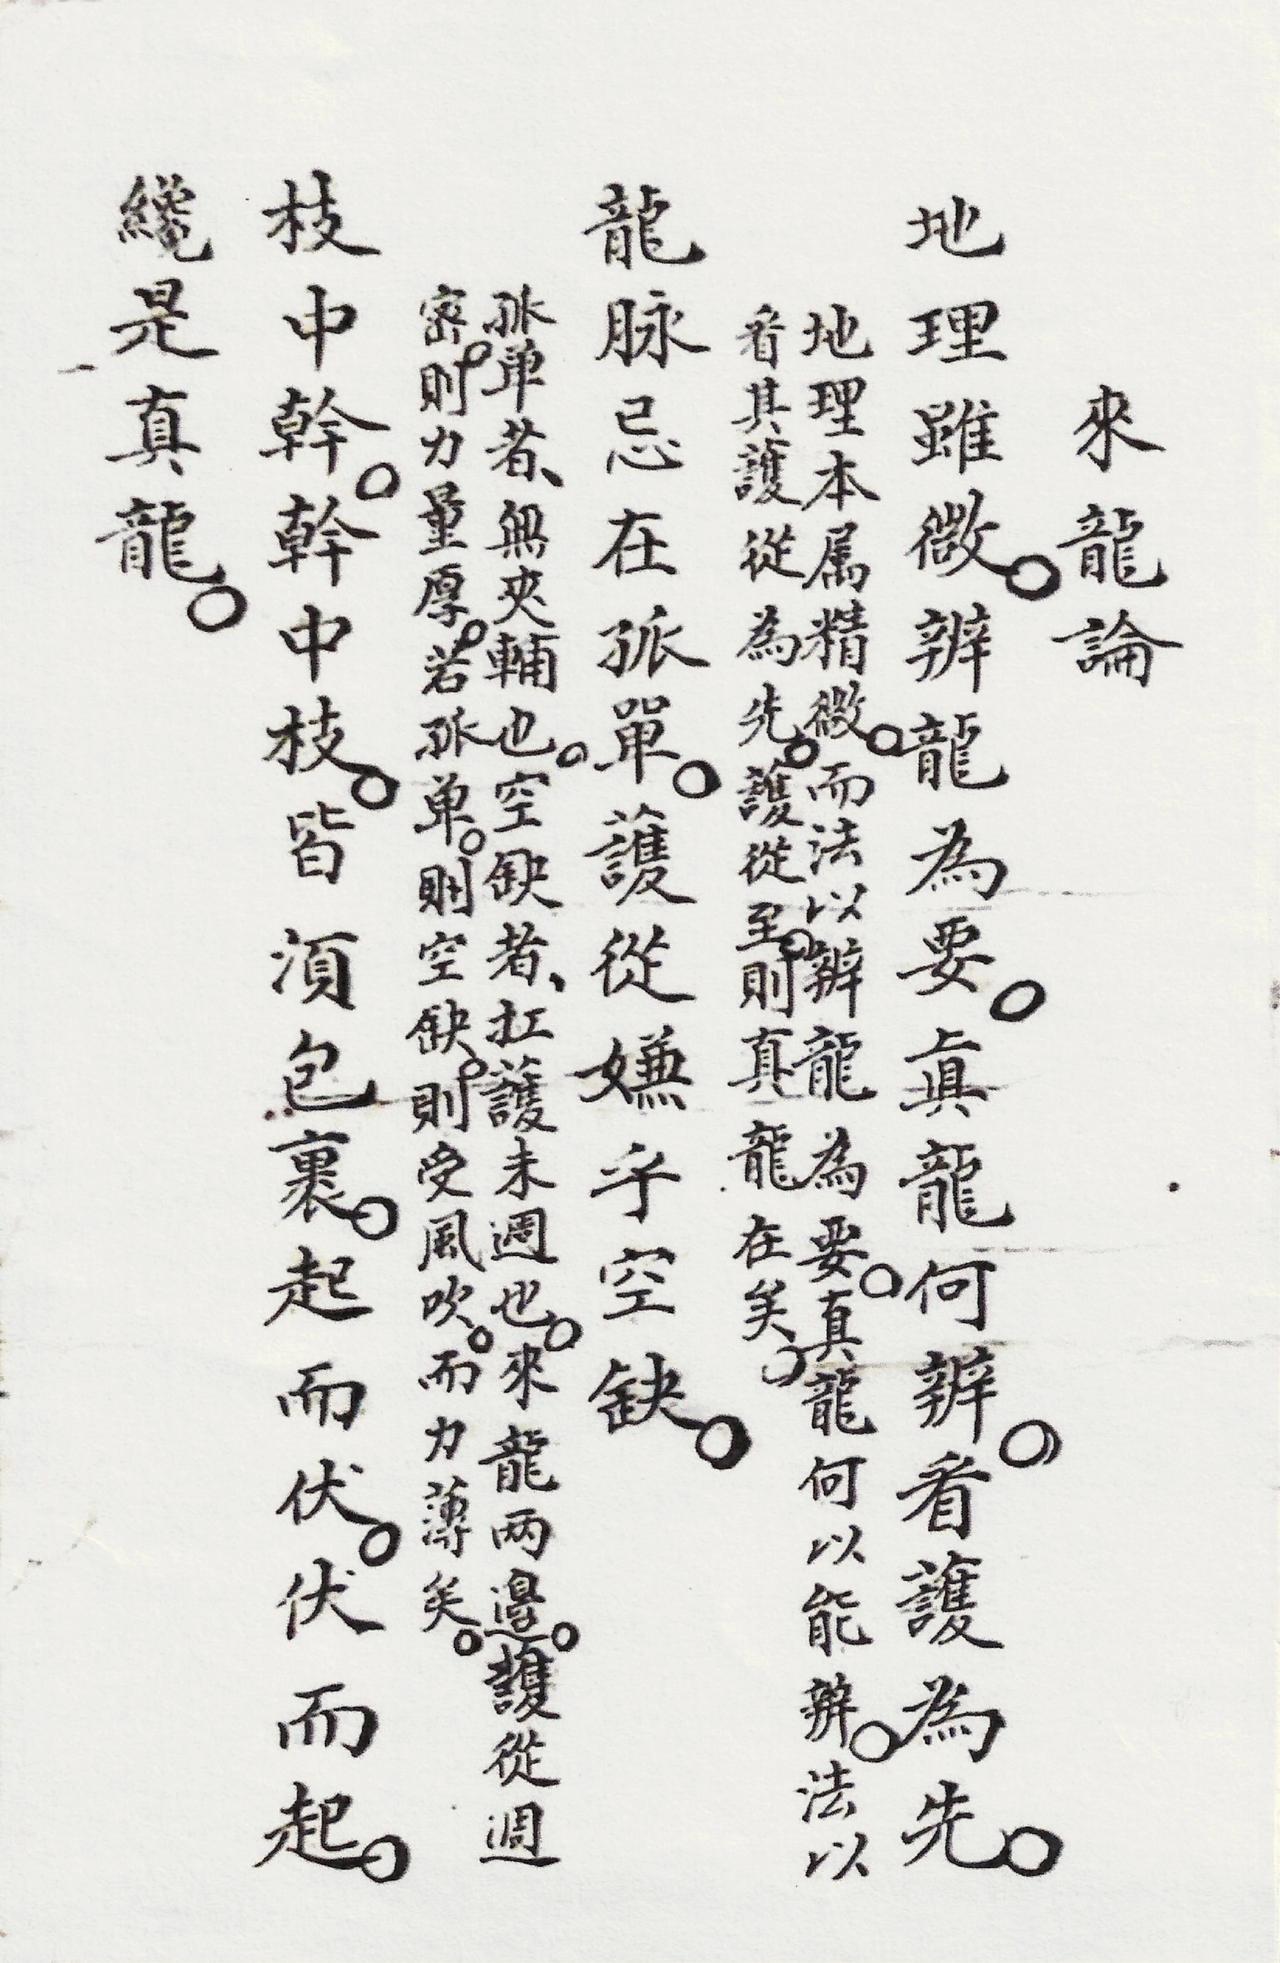 來龍論
地理雖微。辨龍為要。真龍何辨。看護為先。
地理本属精微。而法以辨龍為要。真龍何以能辨。法以
看其護從為先。護從至。則真龍在矣。
龍脉忌在孤單。護從嫌乎空缺。
孤单者、無夾輔也。空缺者、扛護未週也。來龍两邊。護從週
密。則力量厚。若孤单。則空缺。則受風吹。而力薄矣。
枝中幹。幹中枝。皆須包裹。起而伏。伏而起。
纔是真龍。